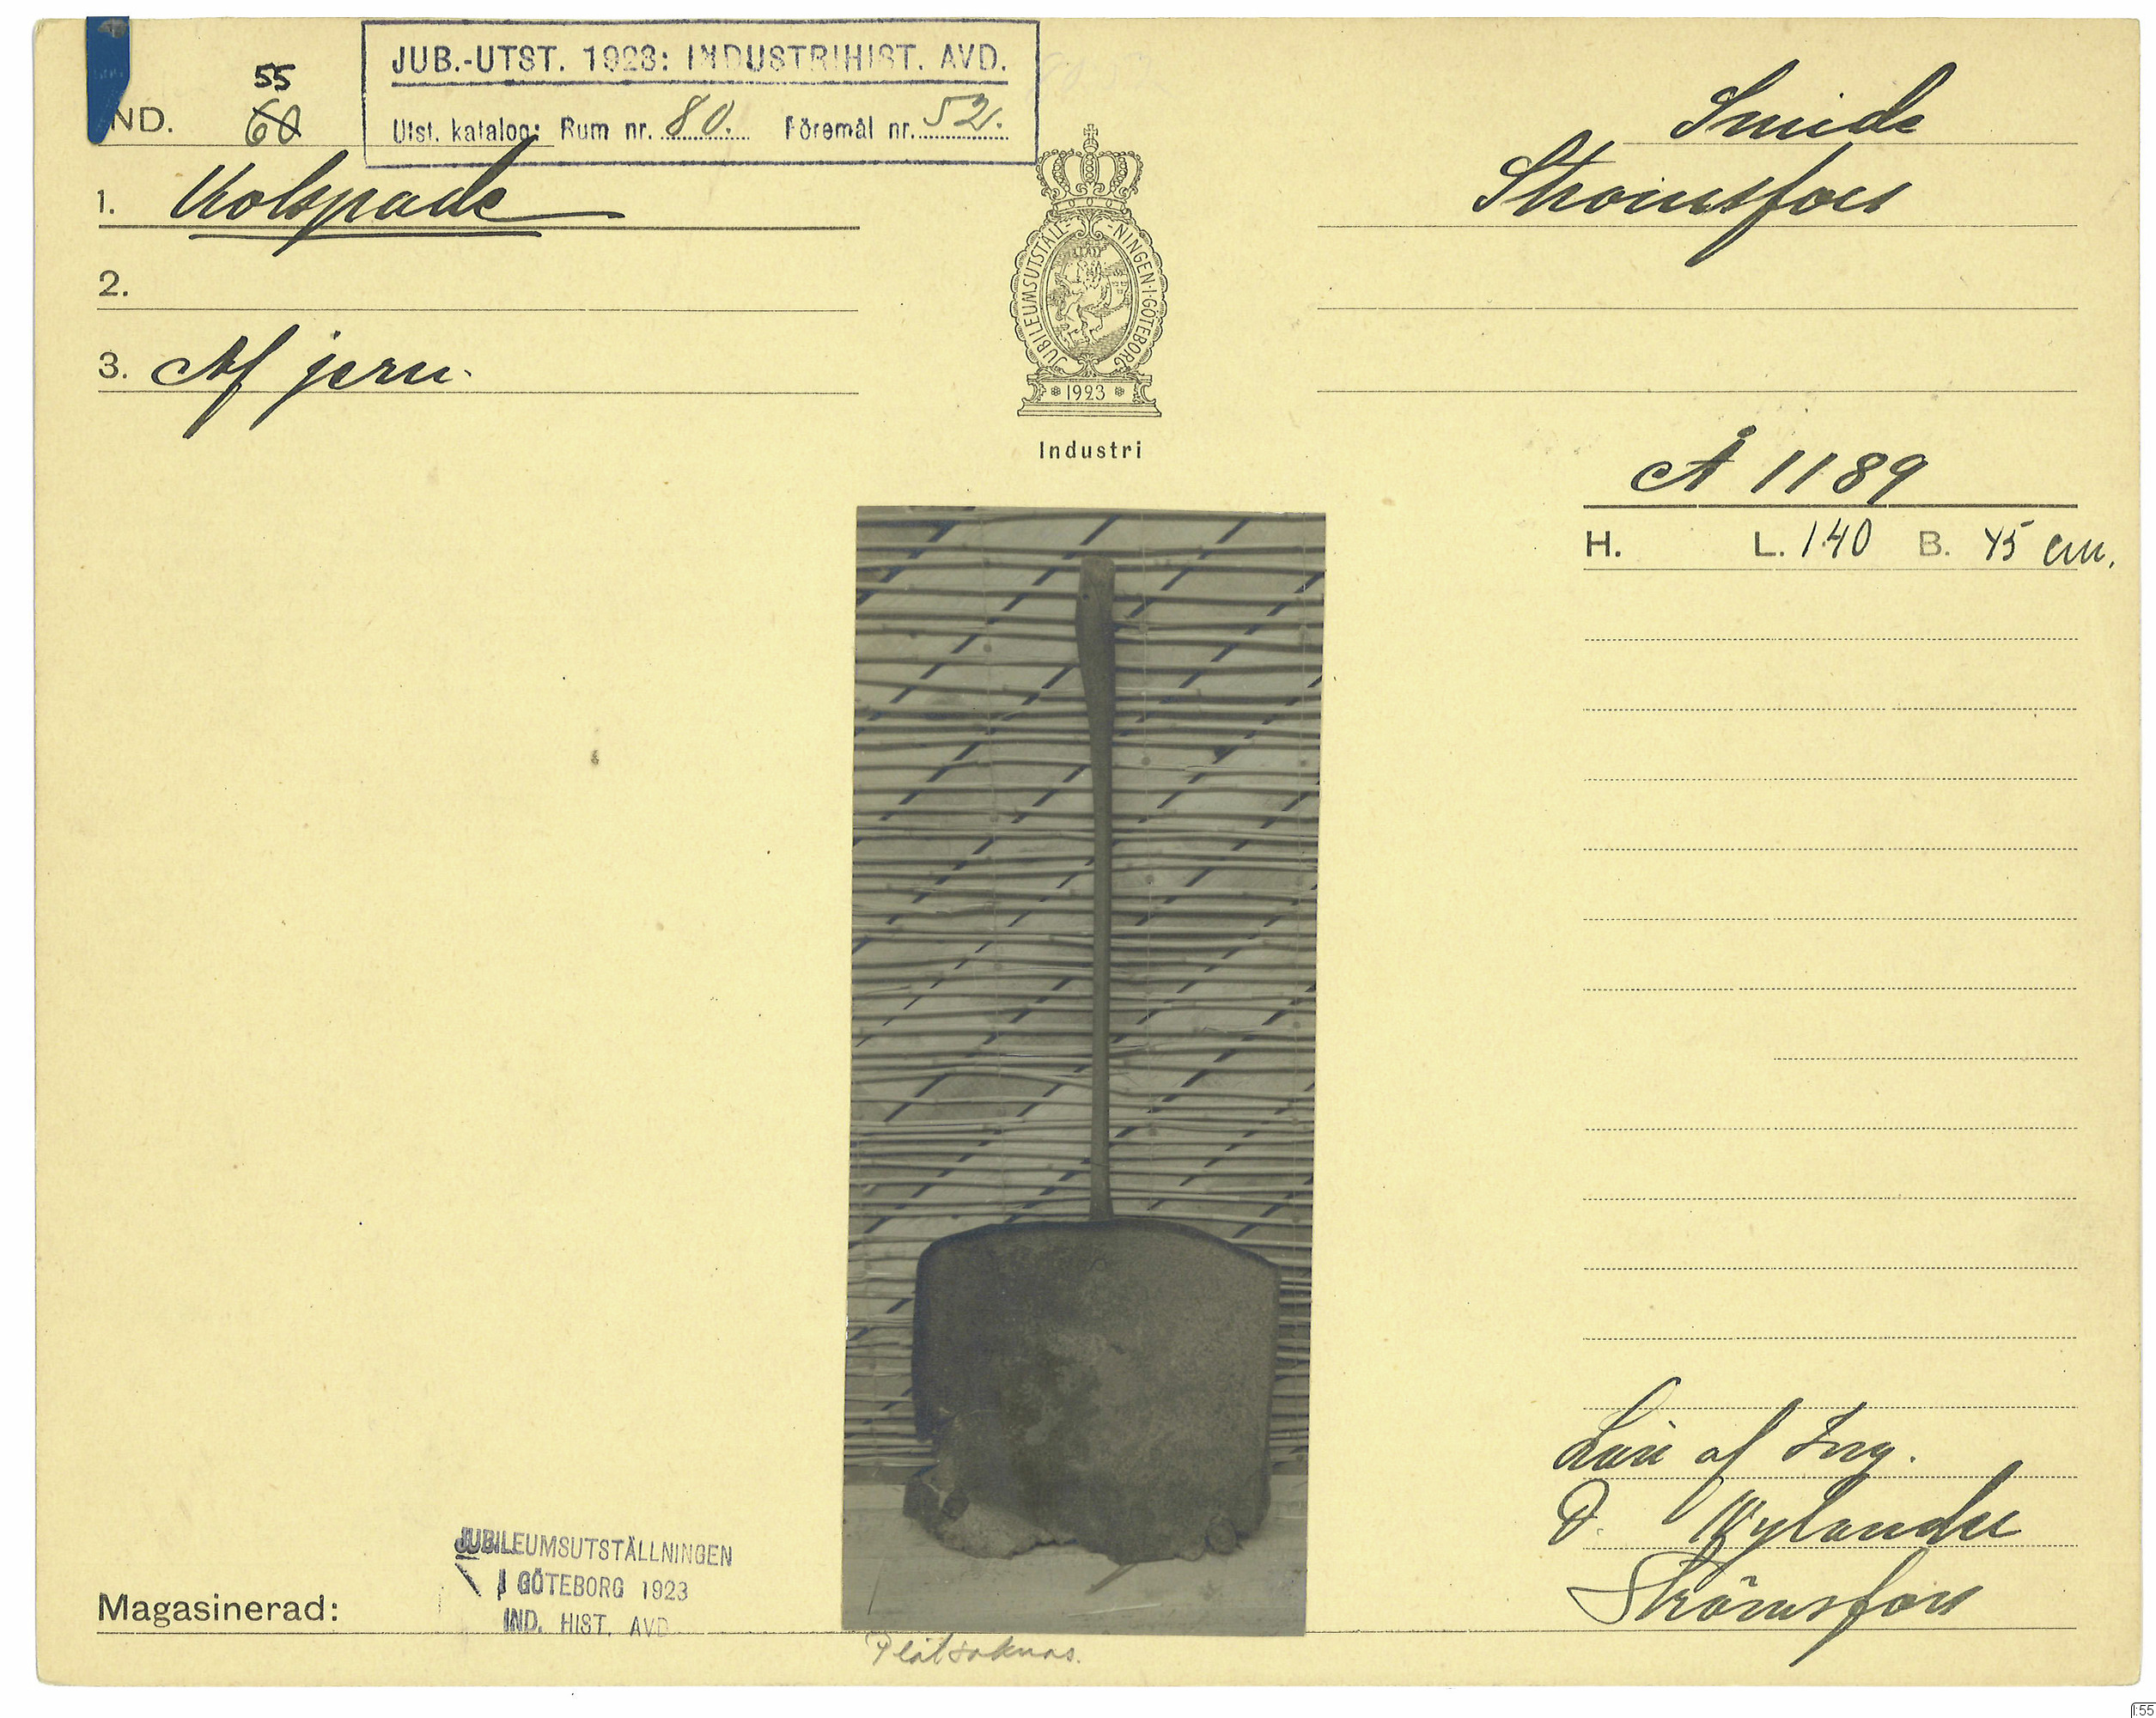 JUB.-UTST. 1923: INDUSTRIHIST. AVD.
Utst. katalog: Rum nr. 80. Föremål nr. 52.
55
IND. 60
Smide
Strömsfors
1. Kolspade
2.
3. Af jern.
JUBILEUMSUTSTÄLL-NINGEN·I·GÖTEBORG
1923
Industri
Å 1189
H. L. 140 B. 45 cm.
Lån af Ing.
Nylander
Strömsfors
JUBILEUMSUTSTÄLLNINGEN
I GÖTEBORG 1923
IND. HIST. AVD
Magasinerad:
Plåt saknas.
I:55